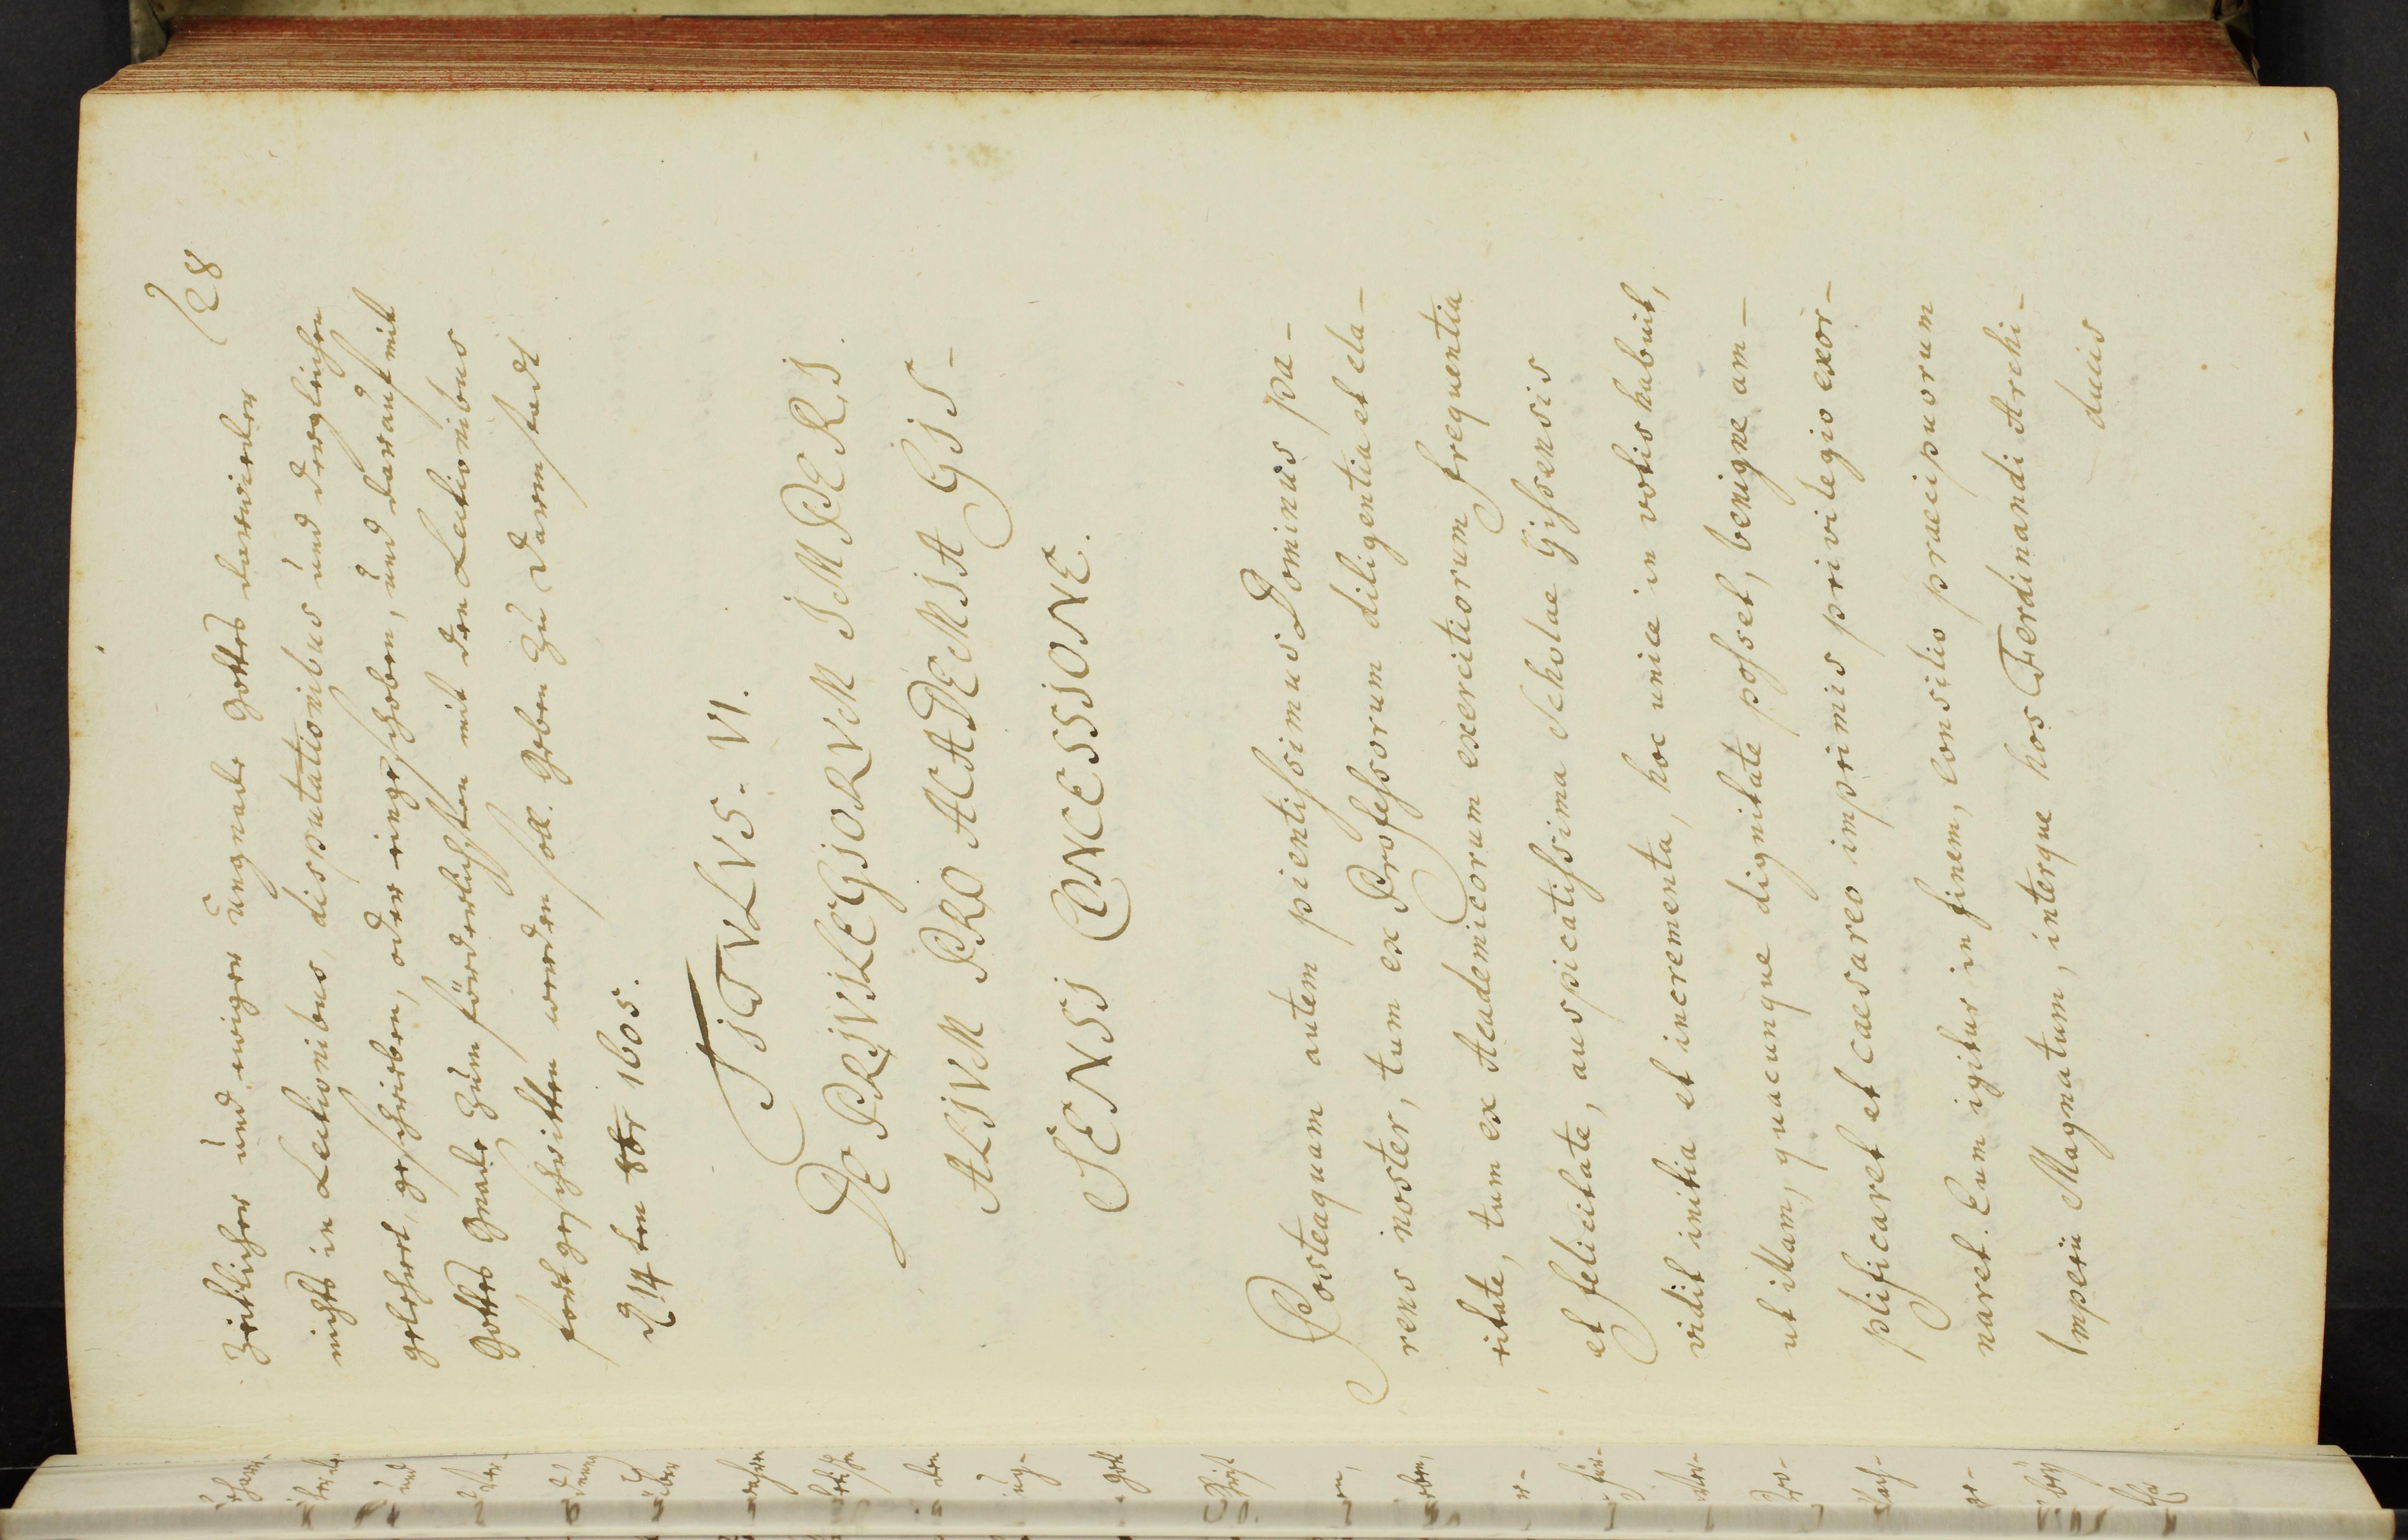 28
Zeitlicher und ewiger ungnade Gottes darwieder
nichts in Lectionibus, disputationibus und dergleichen
gelehret, geschrieben, oder eingeschoben, und darauf mit
Gottes Gnade zum förderlichsten mit den Lectionibus
fortgeschritten werden soll. Geben zu Darmstadt
d 14ten 8br 1605.
TITVLVS. VI.
DE PRIVILEGIORVM IMPERI
ALIVM PRO ACADEMIA GIS-
SENSI CONCESSIONE.
Posteaquam autem pientissimus Dominus pa-
rens noster, tum ex Professorum diligentia et cla-
ritate, tum ex Academicorum exercitiorum frequentia
et felicitate, auspicatissima Scholae Gissensis
vidit initia et incrementa, hoc unice in votis habuit,
ut illam, quacunque dignitate posset, benigne am-
plificaret et caesareo imprimis privilegio exor-
naret. Cum igitur in finem, consilio praecipuorum
Imperii Magnatum, interque hos Ferdinandi Archi-
ducis